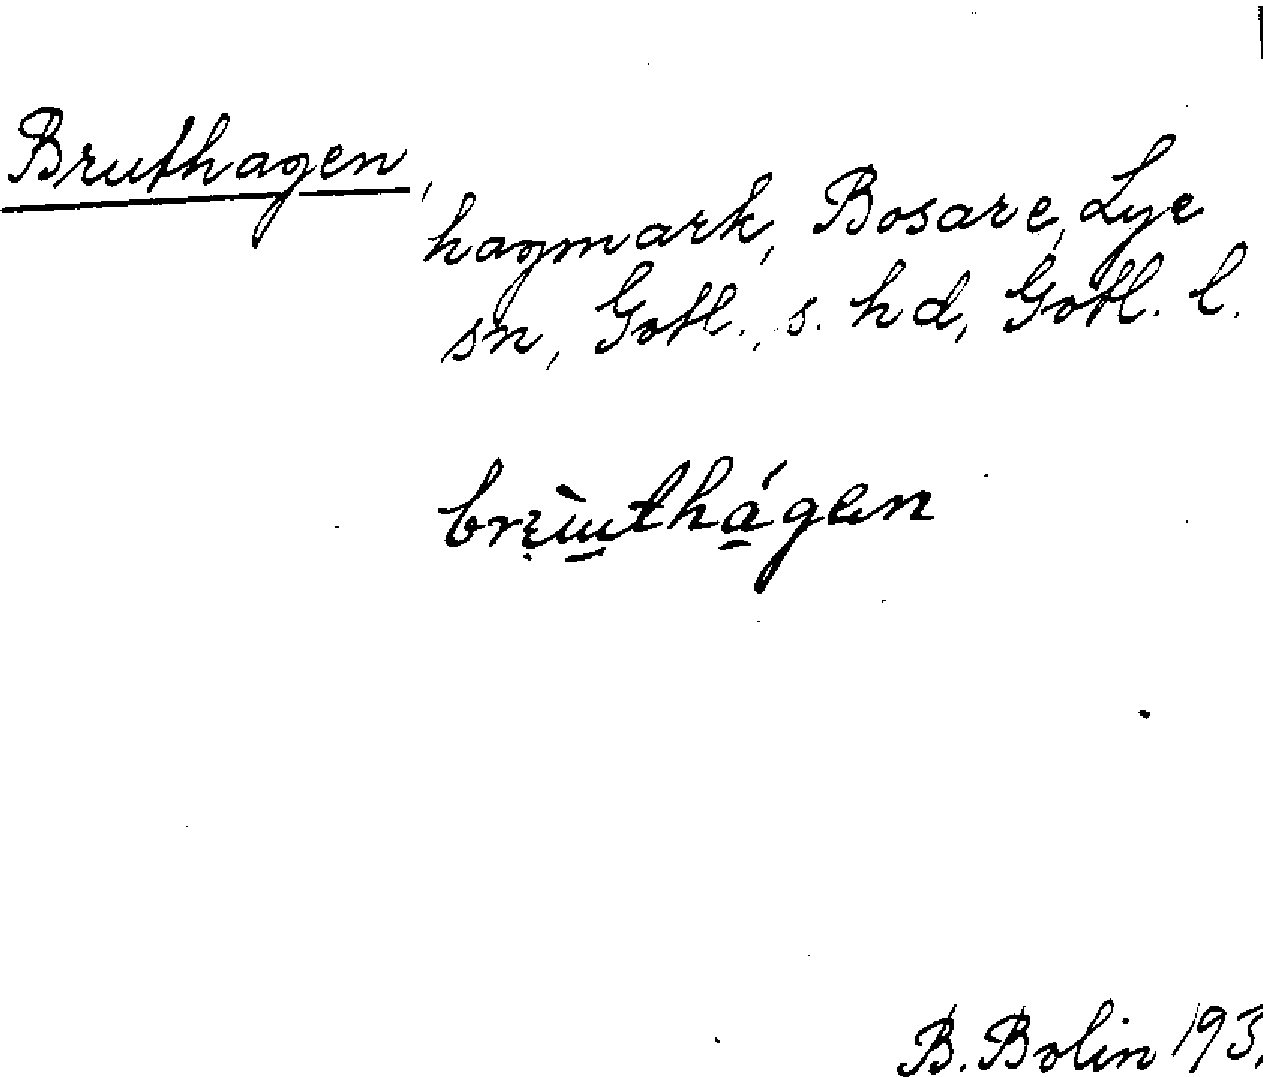 Bruthagen,
hagmark, Bosare, Lye
sn, Gotl., s. hd, Gotl. l.
B. Bolin 193